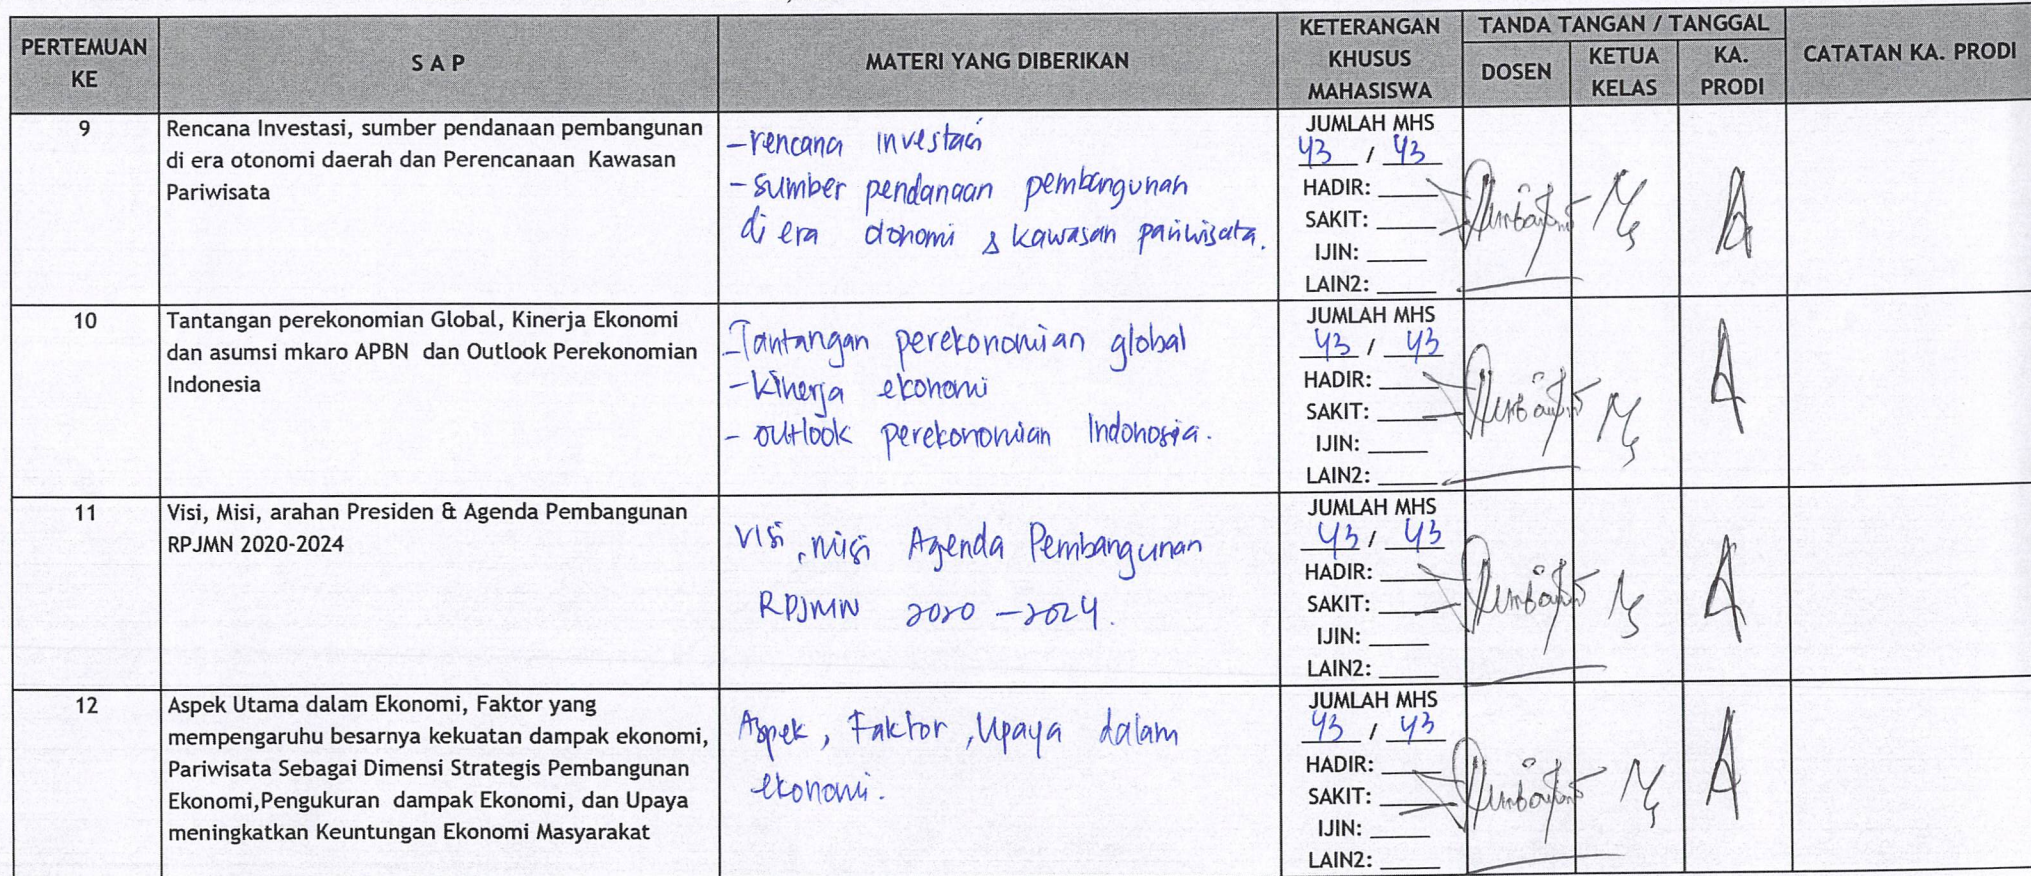 PERTEMUAN KE
S A P
MATERI YANG DIBERIKAN
KETERANGAN KHUSUS MAHASISWA
TANDA TANGAN / TANGGAL
DOSEN
KETUA KELAS
KA. PRODI
CATATAN KA. PRODI
9
Rencana Investasi, sumber pendanaan pembangunan
di era otonomi daerah dan Perencanaan Kawasan
Pariwisata
- rencana investasi
- sumber pendanaan pembangunan
di era otonomi & kawasan pariwisata.
JUMLAH MHS
43 / 43
HADIR:
SAKIT:
IJIN:
LAIN2:
10
Tantangan perekonomian Global, Kinerja Ekonomi
dan asumsi mkaro APBN dan Outlook Perekonomian
Indonesia
- Tantangan perekonomian global
- Kinerja ekonomi
- outlook perekonomian Indonosia.
JUMLAH MHS
43 / 43
HADIR:
SAKIT:
IJIN:
LAIN2:
11
Visi, Misi, arahan Presiden & Agenda Pembangunan
RPJMN 2020-2024
Visi, misi Agenda Pembangunan
RPJMN 2020 - 2024.
JUMLAH MHS
43 / 43
HADIR:
SAKIT:
IJIN:
LAIN2:
12
Aspek Utama dalam Ekonomi, Faktor yang
mempengaruhu besarnya kekuatan dampak ekonomi,
Pariwisata Sebagai Dimensi Strategis Pembangunan
Ekonomi,Pengukuran dampak Ekonomi, dan Upaya
meningkatkan Keuntungan Ekonomi Masyarakat
Aspek, Faktor, Upaya dalam
ekonomi.
JUMLAH MHS
43 / 43
HADIR:
SAKIT:
IJIN:
LAIN2: